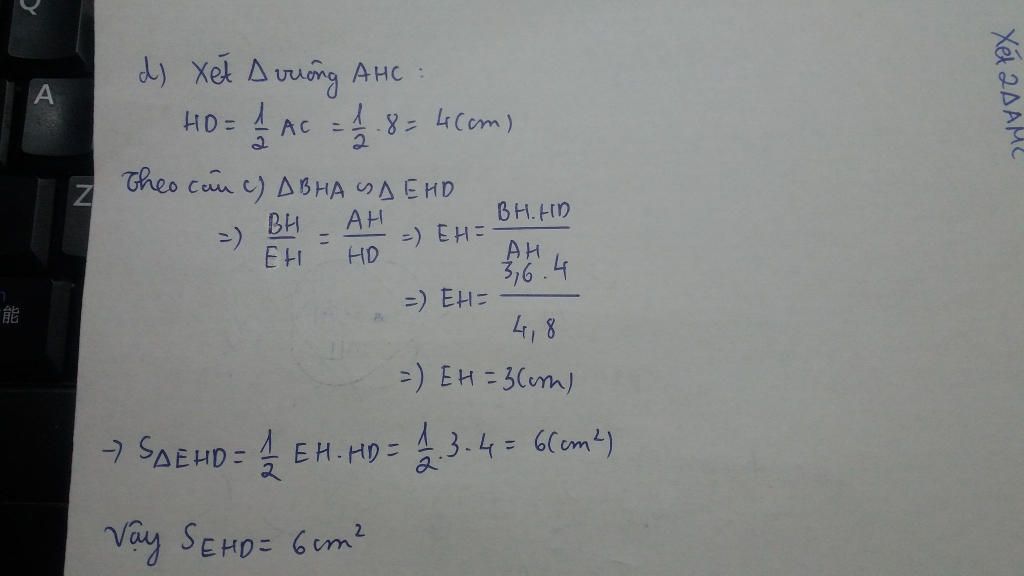 Q
A
Z
能
d) Xét Δ vuông AHC :
HD = 1/2 AC = 1/2 . 8 = 4(cm)
Theo câu c) ΔBHA ∽ Δ EHD
=) BH/EH = AH/HD =) EH = BH.HD/AH
=) EH = 3,6 . 4/4,8
=) EH = 3(cm)
→ SΔEHD = 1/2 EH.HD = 1/2 . 3 . 4 = 6(cm²)
Vậy SEHD = 6cm²
Xét 2ΔAMC